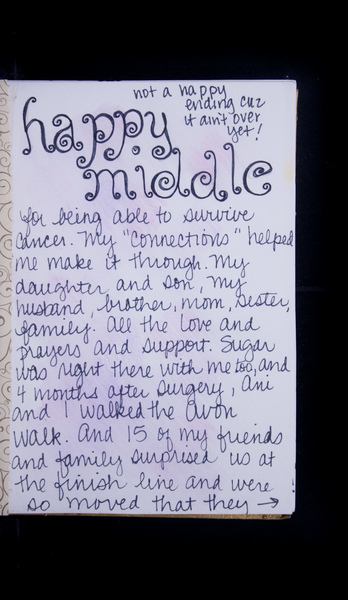 not a happy
ending cuz
it ain't over
yet!
happy
middle
for being able to survive
cancer. My "connections" helped
me make it through. My
daughter and son, my
husband, brother, mom, sister,
family. All the love and
prayers and support. Sugar
was right there with me too, and
4 months after surgery, Ani
and I walked the Avon
Walk. And 15 of my friends
and family surprised us at
the finish line and were
so moved that they →